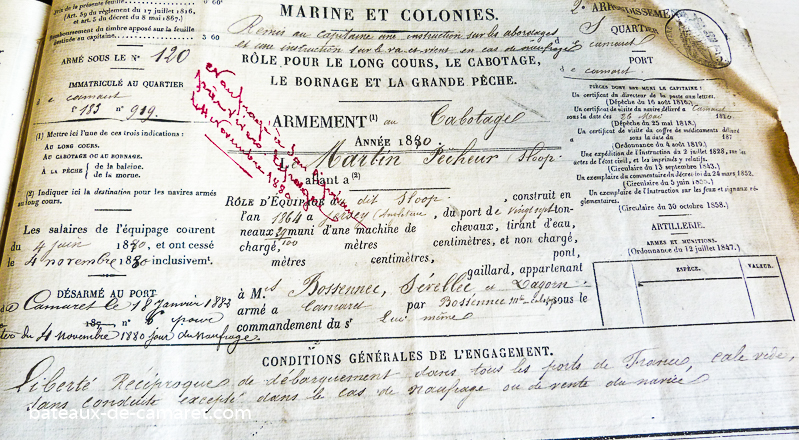 (Art. 59 du règlement du 17 juillet 1816,
et art. 5 du décret du 8 mai 1867.)
Remboursement du timbre apposé sur la feuille
destinée au capitaine. 3 60
ARMÉ SOUS LE N° 120
IMMATRICULÉ AU QUARTIER
de Camaret
f° 183 n° 919.
(1) Mettre ici l'une de ces trois indications :
AU LONG COURS.
AU CABOTAGE OU AU BORNAGE.
À LA PÊCHE de la baleine.
de la morue.
(2) Indiquer ici la destination pour les navires armés
au long cours.
Les salaires de l'équipage courent
du 4 juin 1880, et ont cessé
le 4 novembre 1880 inclusivemt.
DÉSARMÉ AU PORT
de Camaret le 18 Janvier 1883
187 n° 6 pour
du 4 Novembre 1880 jour du Naufrage.
MARINE ET COLONIES.
Remis au capitaine une instruction sur les abordages
et une instruction sur le va et vient en cas de naufrage
RÔLE POUR LE LONG COURS, LE CABOTAGE,
LE BORNAGE ET LA GRANDE PÊCHE.
Naufragé
4 Novembre 1880
ARMEMENT (1) au Cabotage
ANNÉE 1880.
L Martin Pêcheur Sloop
allant à (2)
RÔLE D'ÉQUIPAGE du dit Sloop, construit en
l'an 1864 à Jersey, du port de vingt sept ton-
neaux muni d'une machine de chevaux, tirant d'eau,
chargé, mètres centimètres, et non chargé,
mètres centimètres, pont,
gaillard, appartenant
à M.rs Bossennec, Sérellec et Lagorn
armé à Camaret par Bossennec sous le
commandement du sr lui même
2e ARRONDISSEMENT
QUARTIER
de Camaret
PORT
de Camaret
PIÈCES DONT EST MUNI LE CAPITAINE :
Un certificat du directeur de la poste aux lettres.
(Dépêche du 16 août 1816.)
Un certificat de visite du navire délivré à Camaret
sous la date du 26 Mai 1880
(Dépêche du 25 mai 1818.)
Un certificat de visite du coffre de médicaments délivré
sous la date du 187
(Ordonnance du 4 août 1819.)
Une expédition de l'Instruction du 2 juillet 1828, sur les
actes de l'état civil, et les imprimés y relatifs.
(Circulaire du 13 septembre 1843.)
Un exemplaire du commentaire du décret-loi du 24 mars 1852.
(Circulaire du 3 juin 1852.)
Un exemplaire de l'Instruction sur les feux et signaux ré-
glementaires.
(Circulaire du 30 octobre 1858.)
ARTILLERIE.
ARMES ET MUNITIONS.
(Ordonnance du 12 juillet 1847.)
ESPÈCE. VALEUR.
CONDITIONS GÉNÉRALES DE L'ENGAGEMENT.
Liberté Réciproque de débarquement dans tous les ports de France, cale vide,
sans conduite excepté dans le cas de naufrage ou de vente du navire
bateaux-de-camaret.com